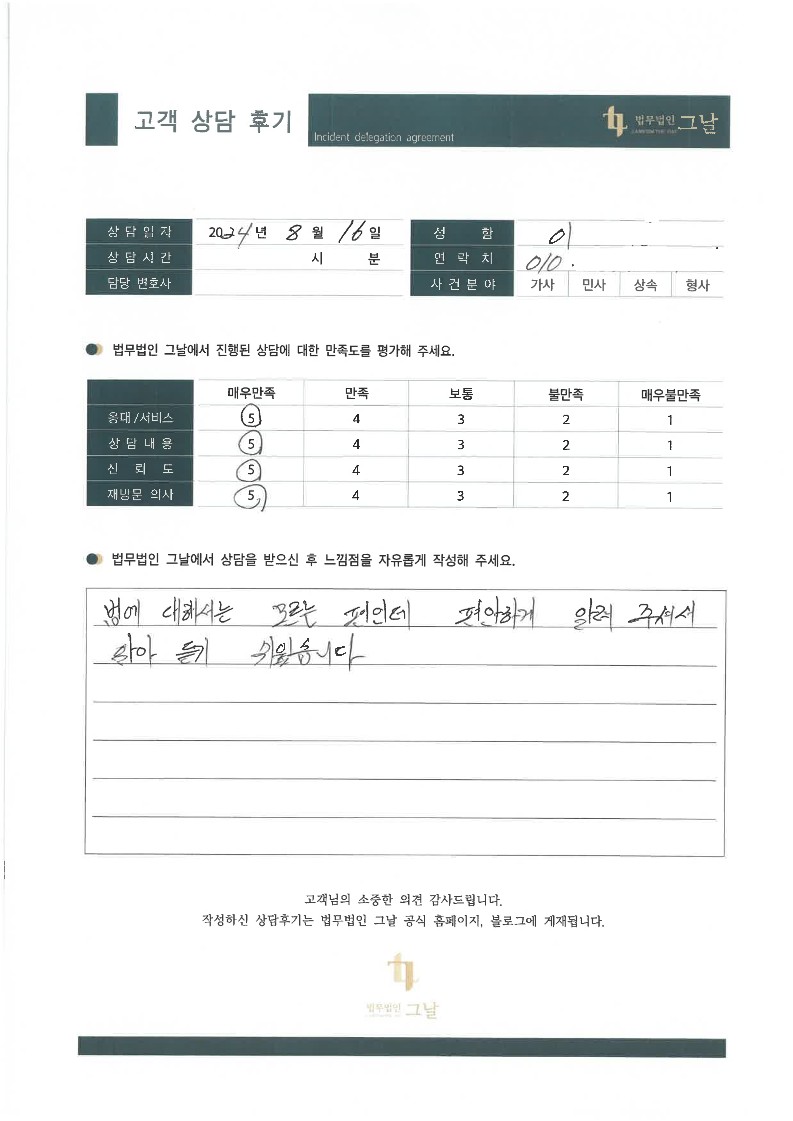 고객 상담 후기
Incident delegation agreement
법무법인 그날
상담일자 2024년 8월 16일 성함 이
상담시간 시 분 연락처 010
담당 변호사 사건분야 가사 민사 상속 형사
법무법인 그날에서 진행된 상담에 대한 만족도를 평가해 주세요.
매우만족 만족 보통 불만족 매우불만족
응대/서비스 5 4 3 2 1
상담내용 5 4 3 2 1
신뢰도 5 4 3 2 1
재방문 의사 5 4 3 2 1
법무법인 그날에서 상담을 받으신 후 느낌점을 자유롭게 작성해 주세요.
법에 대해서는 모르는 편인데 편안하게 알려 주셔서
알아 듣기 쉬웠습니다
고객님의 소중한 의견 감사드립니다.
작성하신 상담후기는 법무법인 그날 공식 홈페이지, 블로그에 게재됩니다.
법무법인 그날